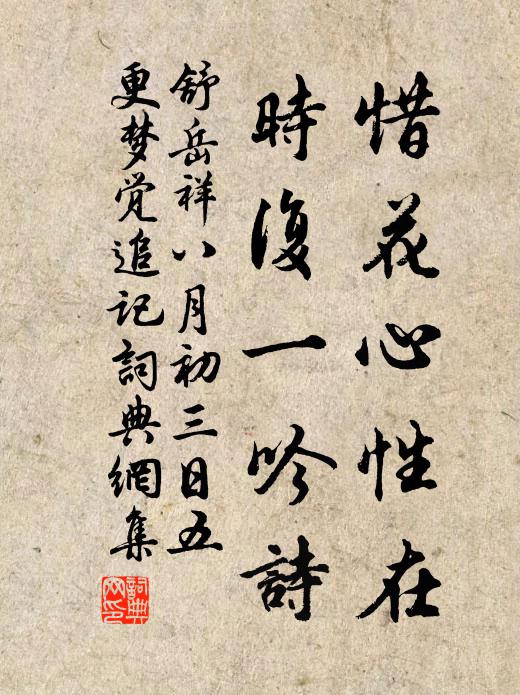 惜花心性在
時復一吟詩
舒岳祥八月初三日五
更梦觉追记詞典網集
詞典網印